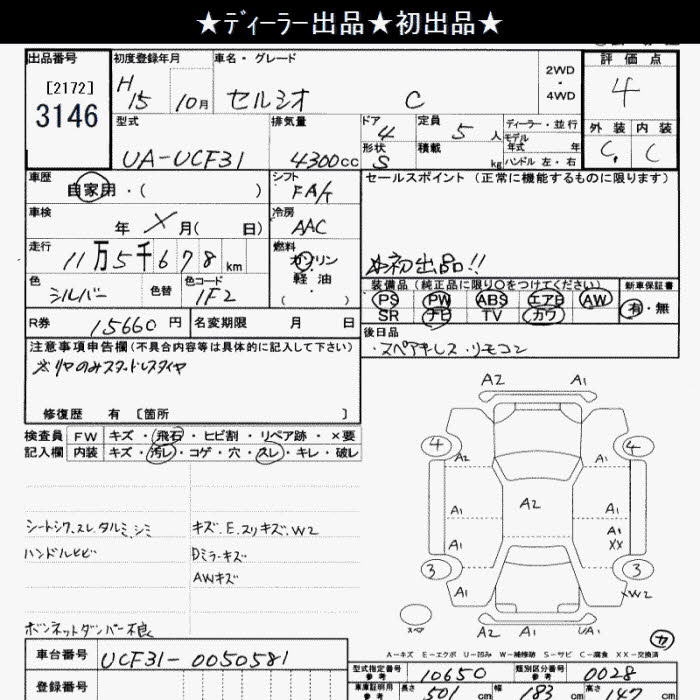 ★ディーラー出品★初出品★
出品番号 初度登録年月 車名・グレード 2WD・4WD 評価点
[2172]
3146 H15 10月 セルシオ C 4
型式 排気量 ドア 4 定員 5人 ディーラー・並行 外装 内装
モデル年式 年
UA-UCF31 4300cc 形状 S 積載 kg ハンドル 左・右 C C
車歴 自家用・( ) シフト FA/t セールスポイント (正常に機能するものに限ります)
車検 年 月( 日) 冷房 AAC
走行 11万5千678km 燃料 ガソリン・軽油 初出品!!
色 シルバー 色替 色コード 1F2
装備品(純正品に限り○をつけてください) 新車保証書
PS PW ABS エアB AW 有・無
SR ナビ TV カワ
R券 15660円 名変期限 月 日 後日品
・スペアキーレス・リモコン
注意事項申告欄(不具合内容等は具体的に記入して下さい)
リヤのみスタッドレスタイヤ
修復歴 有 [箇所 ]
検査員 FW キズ・飛石・ヒビ割・リペア跡・×要
記入欄 内装 キズ・汚レ・コゲ・穴・スレ・キレ・破レ
A2 A1
4 4
A2 A1
A1 A2 A1
A1 A1 XX
3 3
A1 A1 XW2
スペア A2 A1 UA1
シートシワ、スレ、タルミ、シミ キズ、E、スリキズ、W2
ハンドルヒビ Dミラーキズ
AWキズ
ボンネットダンパー不良
A-キズ E-エクボ U-凹み W-補修跡 S-サビ C-腐食 XX-交換済
車台番号 UCF31-0050581
登録番号
型式指定番号 参考 10650 類別区分番号 参考 0028
車庫証明用 参考 長さ 501cm 幅 183cm 高さ 147cm